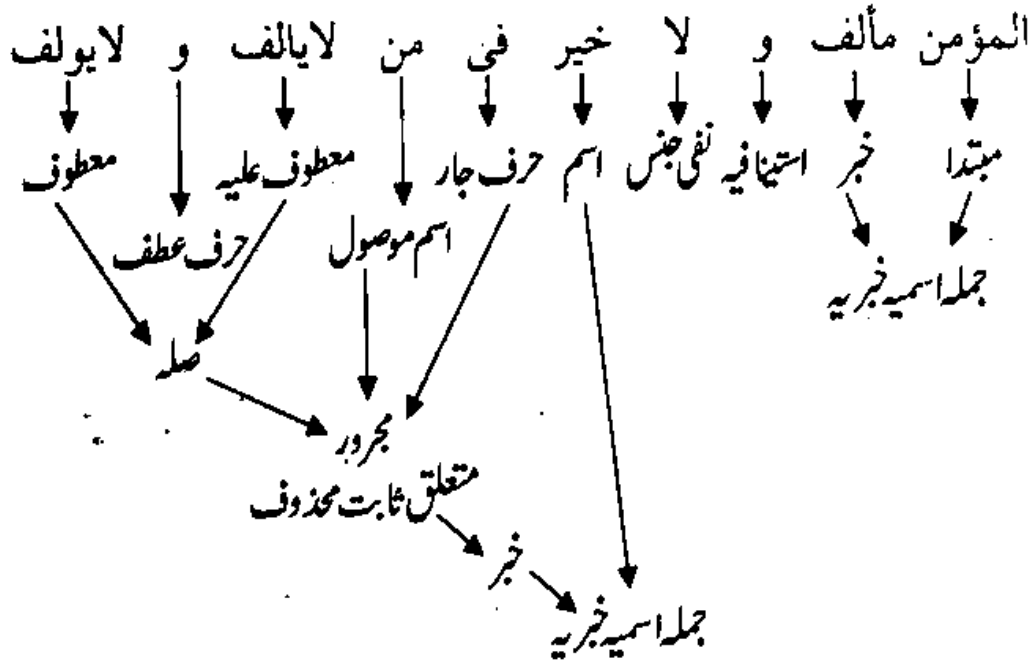 المؤمن مألف و لا خير فی من لایالف و لایولف
مبتدا خبر استینافیہ نفی جنس اسم حرف جار معطوف علیہ معطوف
اسم موصول حرف عطف
جملہ اسمیہ خبریہ
صلہ
مجرور
متعلق ثابت محذوف
خبر
جملہ اسمیہ خبریہ